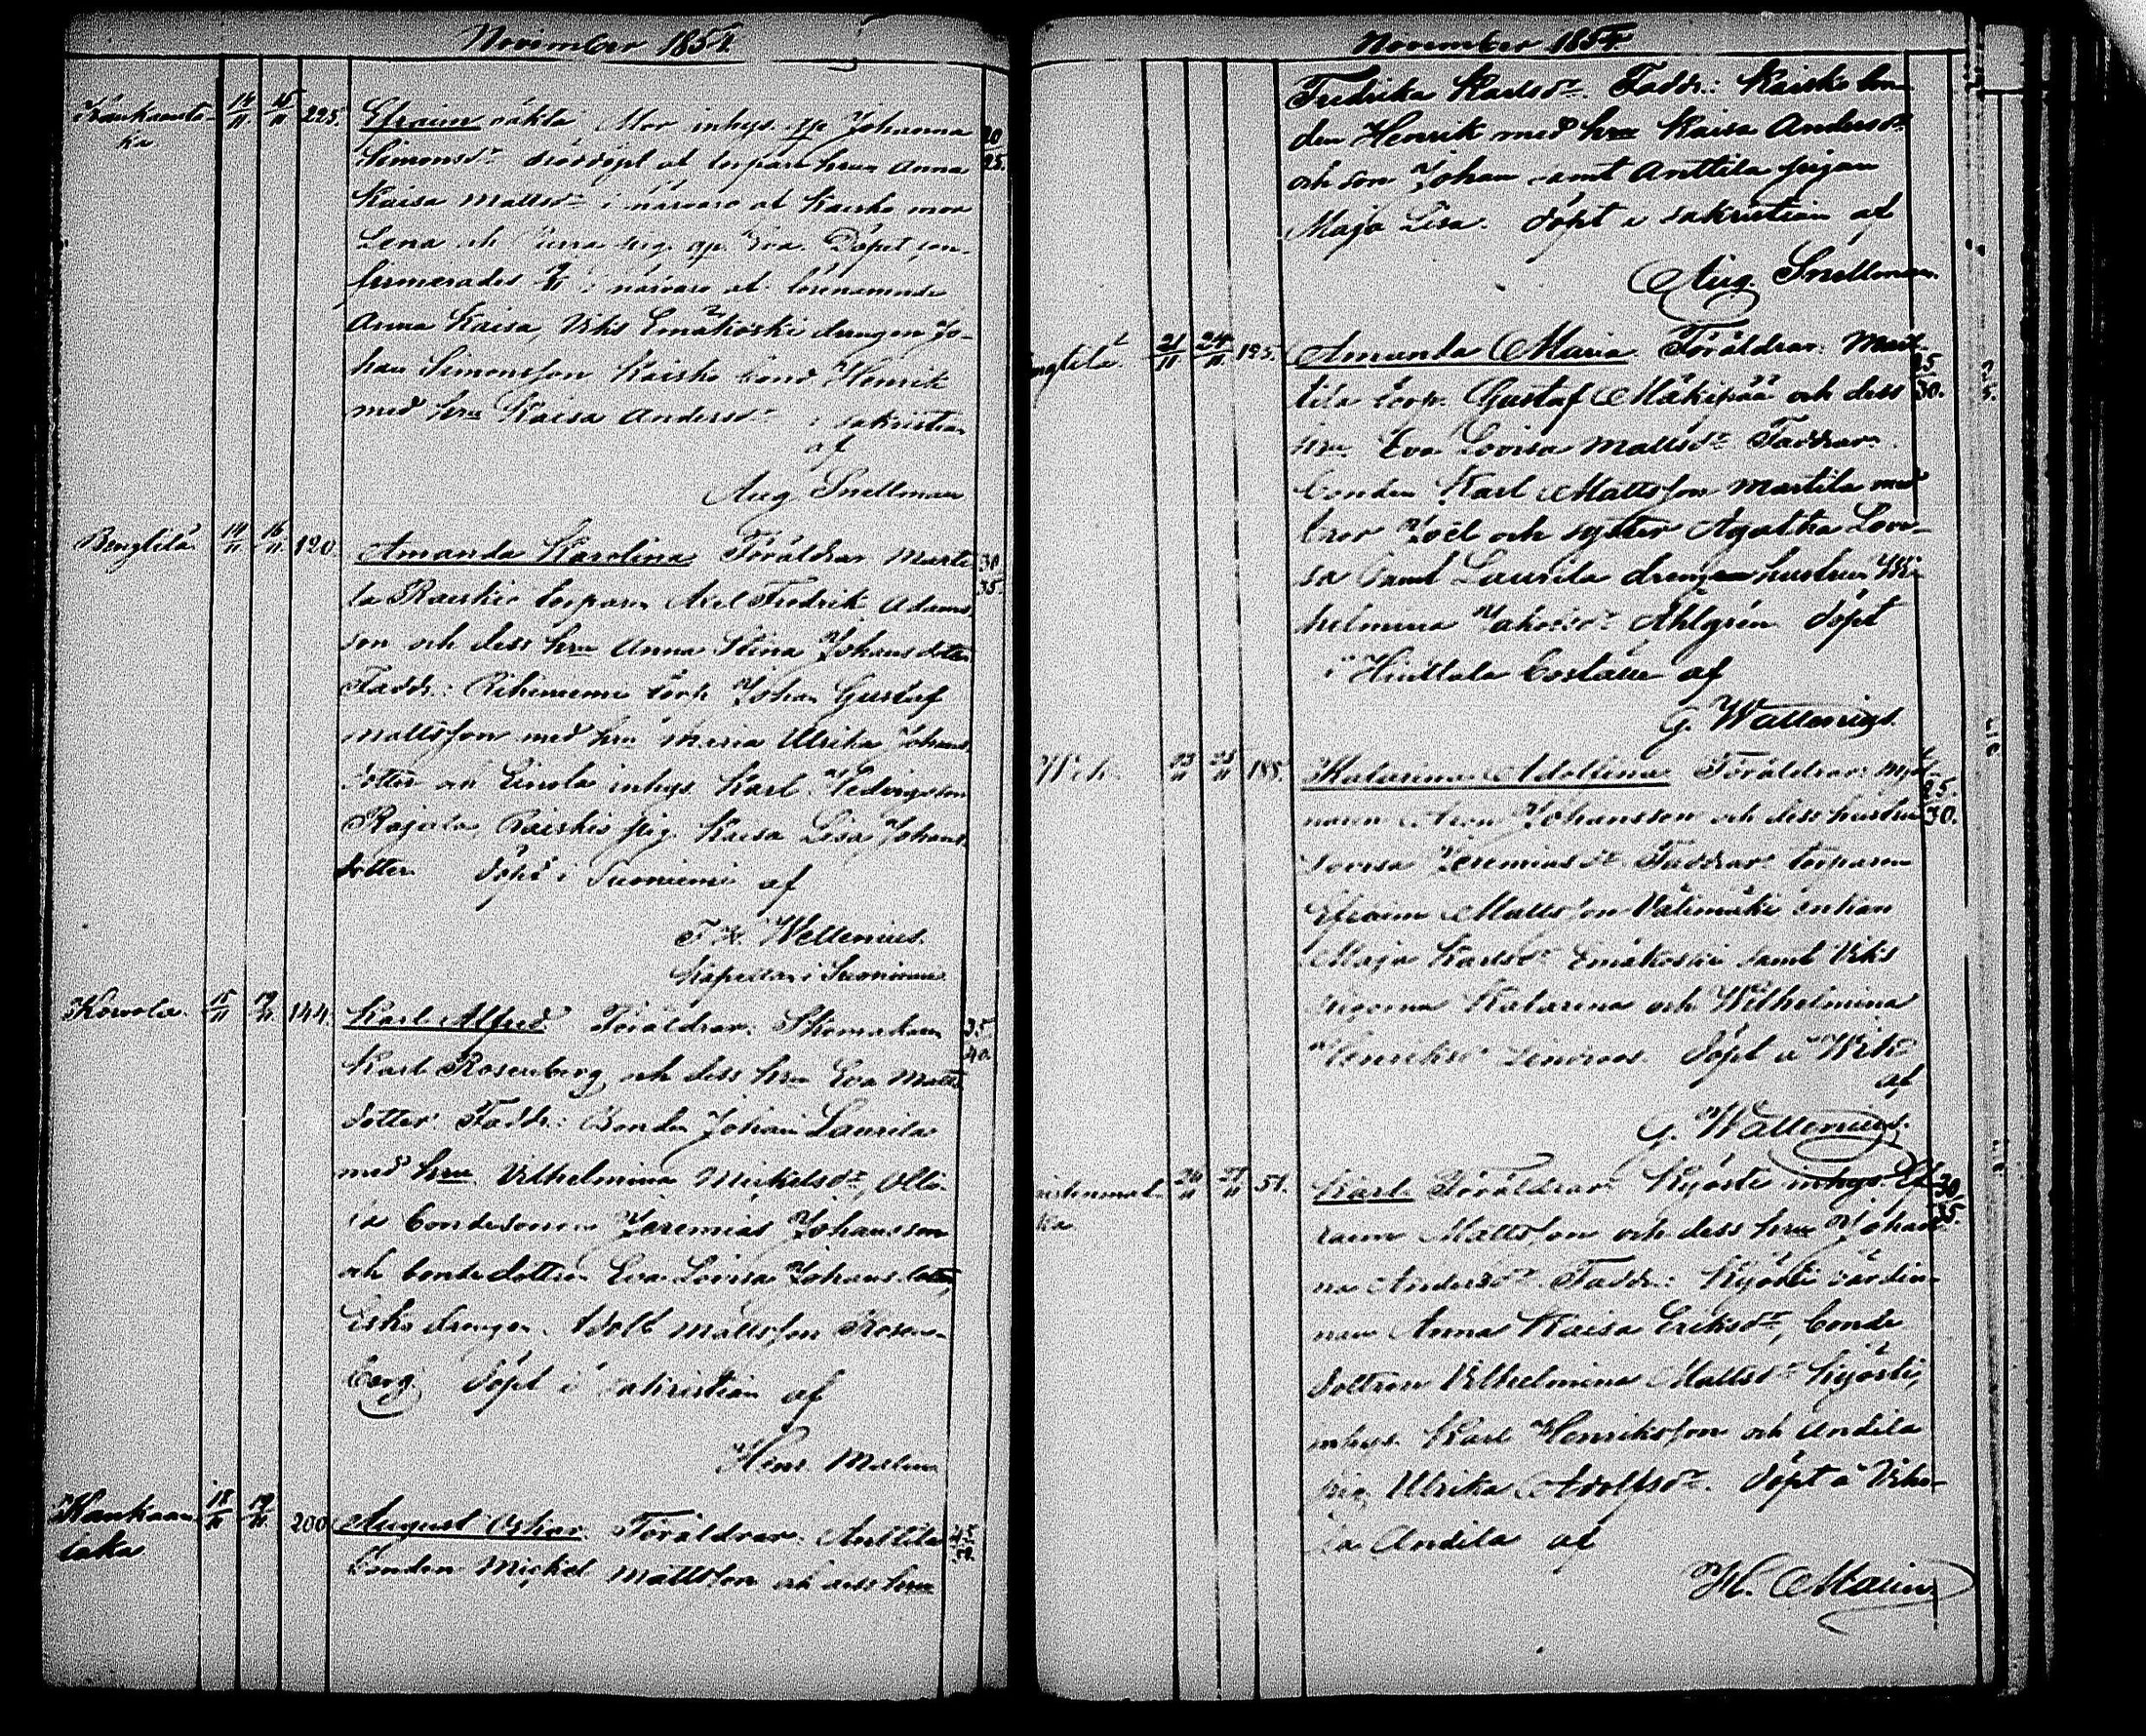 November 1854.
Kankaanta
ka
14/11 15/11 225.
Efraim oäkta Mor inhys. qp. Johanna
Simonsdr nöddöpt af torpare hrun Anna
Kaisa Mattsdr i närvaro af Kaisko mor
Lena och pig. qp. Eva. Döpet con-
firmerades i närvaro af bönämnde
Anna Kaisa, Viks Emäkoski drengen Jo-
han Simonsson Raisko bond Henrik
med hru Kaisa Andersdr i sakristian
af
Aug. Snellman
20/25.
Bengtilä
14/11 16/11 120.
Amanda Karolina Föräldrar Marti
la Raiskio torparn Axel Fredrik Adams
son och dess hru Anna Stina Johansdotter
Faddr: Rihiniemi torp. Johan Gustaf
Mattsson med hru Maria Ulrika Johans
dotter inhys. Karl Hedvigsson
Rajala, Raiskio pig. Kaisa Lisa Johans
dotter döpt i Suoniemi af
F. H. Wellenius.
Kapellan i Suoniemi
30/35.
Kowola.
15/11 19/11 144.
Karl Alfred Föräldrar: Skomakarn
Karl Rosenberg och dess hru Eva Matts
dotter Faddr: Bonden Johan Laurila
med hru Vilhelmina Mickelsdr, Olli-
la bondesonen Jeremias Johansson
och bondedottren Eva Lovisa Johansdotter,
Esko drengen Adolf Mattsson Rosen-
berg. Döpt i sakristian af
Henr. Malin
35/40.
Kankaan
taka
18/11 19/11 200
August Oskar Föräldrar: Anttila
bonden Mickel Mattsson och dess hru
45/50.
November 1854.
Fredrika Karlsdr. Faddr.: Kaisko bon
den Henrik med hru Kaisa Andersdr
och son Johan samt Anttila pigan
Maja Lisa. döpt i sakristian af
Aug. Snellman.
ngtilä
21/11 24/11 125.
Amanda Maria Föräldrar: Mart
tila torp. Gustaf Mäkipää och dess
hru Eva Lovisa Mattsdr Faddrar
bonden Karl Mattsson Martila med
bror Joel och syster Agatha Lovi-
sa samt Laurila drengen hustru Wil
helmina Jakobsdr Ahlgrén döpt
i Hiuttala boställe af
G. Wallenius.
25/30.
Wik.
23/11 25/11 188.
Katarina Adolfina Föräldrar: Myl
naren Aron Johansson och dess hustru
Lovisa Jeremiasdr Faddrar torparen
Efraim Mattsson Välimäki enkan
Maja Karlsdr Emäkoski samt Viks
pigorna Katarina och Wilhelmina
Henriksdr Lindroos. Döpt i Wik
af
G. Wallenius.
25./30.
ka
26/11 27/11 51.
Karl Föräldrar: Kyösti inhys Ef
raim Mattsson och dess hru Johan
na Andersdr Faddr: Kyösti värdin-
nan Anna Kaisa Eriksdr, bonde
dottren Vilhelmina Mattsdr Kyösti,
inhys. Karl Henriksson och Andila
pig. Ulrika Adolfsdr. Döpt i Viho-
la Andila af
H. Malin
30/35.